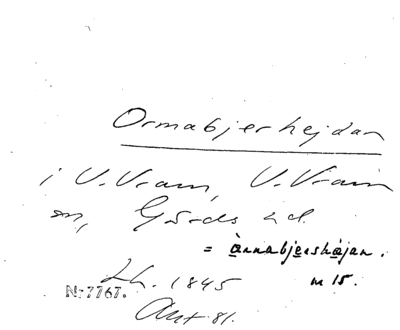 Ormabjerhejdan
i V. Vram, V. Vram
sn, Gärds hd.
= ànnabjershajan.
Lh. 1845 m 15.
Nr 7767.
Akt 81.